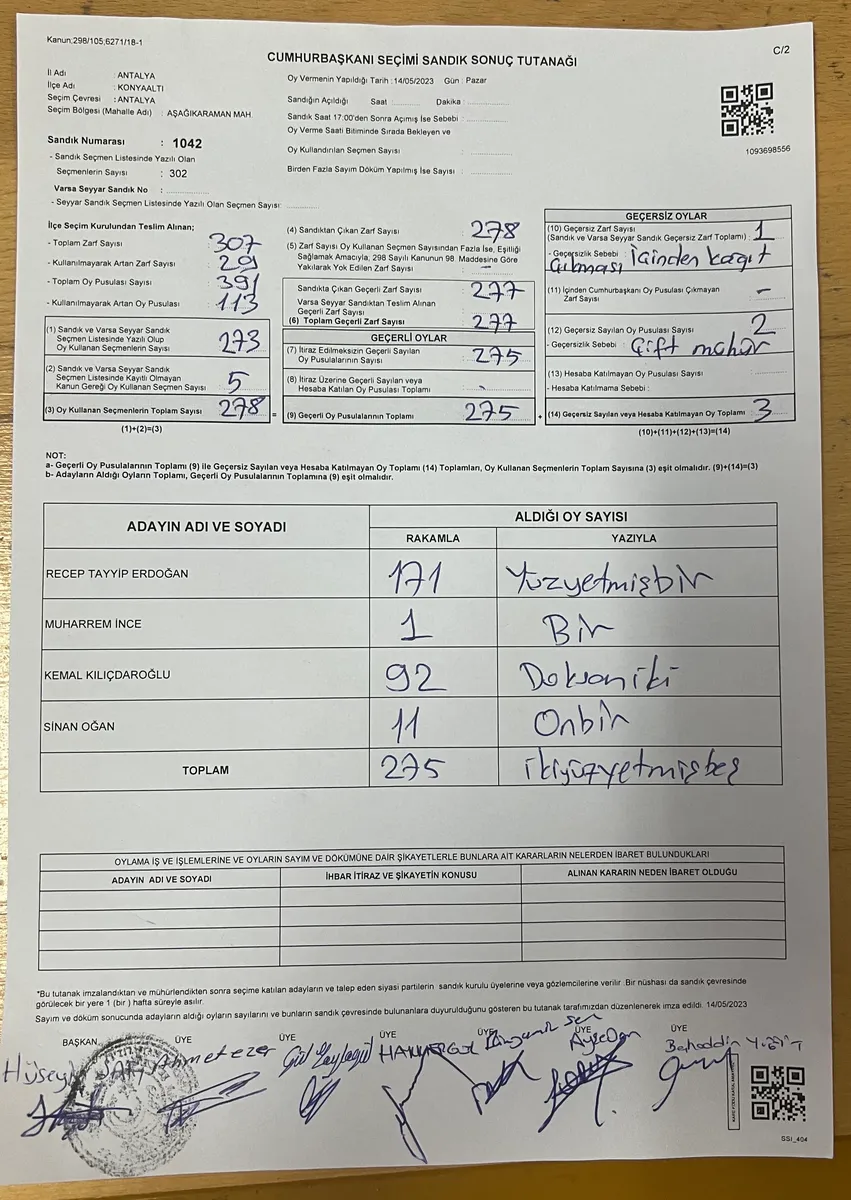 Kanun,298/105,6271/18-1
C/2
CUMHURBAŞKANI SEÇİMİ SANDIK SONUÇ TUTANAĞI
İl Adı : ANTALYA
İlçe Adı : KONYAALTI
Seçim Çevresi : ANTALYA
Seçim Bölgesi (Mahalle Adı) : AŞAĞIKARAMAN MAH.
Sandık Numarası : 1042
- Sandık Seçmen Listesinde Yazılı Olan
Seçmenlerin Sayısı : 302
Varsa Seyyar Sandık No : ..............
- Seyyar Sandık Seçmen Listesinde Yazılı Olan Seçmen Sayısı: ..............
Oy Vermenin Yapıldığı Tarih :14/05/2023 Gün : Pazar
Sandığın Açıldığı Saat .............. Dakika : ..............
Sandık Saat 17.00'den Sonra Açımış İse Sebebi : ..............
Oy Verme Saati Bitiminde Sırada Bekleyen ve
Oy Kullandırılan Seçmen Sayısı : ..............
Birden Fazla Sayım Döküm Yapılmış İse Sayısı : ..............
1093698556
İlçe Seçim Kurulundan Teslim Alınan;
- Toplam Zarf Sayısı : 307
- Kullanılmayarak Artan Zarf Sayısı : 29
- Toplam Oy Pusulası Sayısı : 391
- Kullanılmayarak Artan Oy Pusulası : 113
(1) Sandık ve Varsa Seyyar Sandık
Seçmen Listesinde Yazılı Olup
Oy Kullanan Seçmenlerin Sayısı : 273
(2) Sandık ve Varsa Seyyar Sandık
Seçmen Listesinde Kayıtlı Olmayan
Kanun Gereği Oy Kullanan Seçmen Sayısı : 5
(3) Oy Kullanan Seçmenlerin Toplam Sayısı : 278 =
(1)+(2)=(3)
(4) Sandıktan Çıkan Zarf Sayısı : 278
(5) Zarf Sayısı Oy Kullanan Seçmen Sayısından Fazla İse, Eşitliği
Sağlamak Amacıyla, 298 Sayılı Kanunun 98. Maddesine Göre
Yakılarak Yok Edilen Zarf Sayısı : –
Sandıkta Çıkan Geçerli Zarf Sayısı : 277
Varsa Seyyar Sandıktan Teslim Alınan
Geçerli Zarf Sayısı :
(6) Toplam Geçerli Zarf Sayısı : 277
GEÇERLİ OYLAR
(7) İtiraz Edilmeksizin Geçerli Sayılan
Oy Pusulalarının Sayısı : 275
(8) İtiraz Üzerine Geçerli Sayılan veya
Hesaba Katılan Oy Pusulası Toplamı : -
(9) Geçerli Oy Pusulalarının Toplamı : 275 +
GEÇERSİZ OYLAR
(10) Geçersiz Zarf Sayısı
(Sandık ve Varsa Seyyar Sandık Geçersiz Zarf Toplamı) : 1
- Geçersizlik Sebebi : İçinden kağıt
çıkması
(11) İçinden Cumhurbaşkanı Oy Pusulası Çıkmayan
Zarf Sayısı : –
(12) Geçersiz Sayılan Oy Pusulası Sayısı : 2
- Geçersizlik Sebebi : Çift mühür
(13) Hesaba Katılmayan Oy Pusulası Sayısı : ..............
- Hesaba Katılmama Sebebi :
(14) Geçersiz Sayılan veya Hesaba Katılmayan Oy Toplamı : 3
(10)+(11)+(12)+(13)=(14)
NOT:
a- Geçerli Oy Pusulalarının Toplamı (9) ile Geçersiz Sayılan veya Hesaba Katılmayan Oy Toplamı (14) Toplamları, Oy Kullanan Seçmenlerin Toplam Sayısına (3) eşit olmalıdır. (9)+(14)=(3)
b- Adayların Aldığı Oyların Toplamı, Geçerli Oy Pusulalarının Toplamına (9) eşit olmalıdır.
ADAYIN ADI VE SOYADI
ALDIĞI OY SAYISI
RAKAMLA YAZIYLA
RECEP TAYYİP ERDOĞAN 171 Yüzyetmişbir
MUHARREM İNCE 1 Bir
KEMAL KILIÇDAROĞLU 92 Doksaniki
SİNAN OĞAN 11 Onbir
TOPLAM 275 ikiyüzyetmişbeş
OYLAMA İŞ VE İŞLEMLERİNE VE OYLARIN SAYIM VE DÖKÜMÜNE DAİR ŞİKAYETLERLE BUNLARA AİT KARARLARIN NELERDEN İBARET BULUNDUKLARI
ADAYIN ADI VE SOYADI İHBAR İTİRAZ VE ŞİKAYETİN KONUSU ALINAN KARARIN NEDEN İBARET OLDUĞU
*Bu tutanak imzalandıktan ve mühürlendikten sonra seçime katılan adayların ve talep eden siyasi partilerin sandık kurulu üyelerine veya gözlemcilerine verilir .Bir nüshası da sandık çevresinde
görülecek bir yere 1 (bir ) hafta süreyle asılır.
Sayım ve döküm sonucunda adayların aldığı oyların sayılarını ve bunların sandık çevresinde bulunanlara duyurulduğunu gösteren bu tutanak tarafımızdan düzenlenerek imza edildi. 14/05/2023
BAŞKAN ÜYE ÜYE ÜYE ÜYE ÜYE ÜYE
Hüseyin Ahmet ezer Gül Yaylagül Şen Ayşe Dan Bahaddin Yiğit
SSI_404